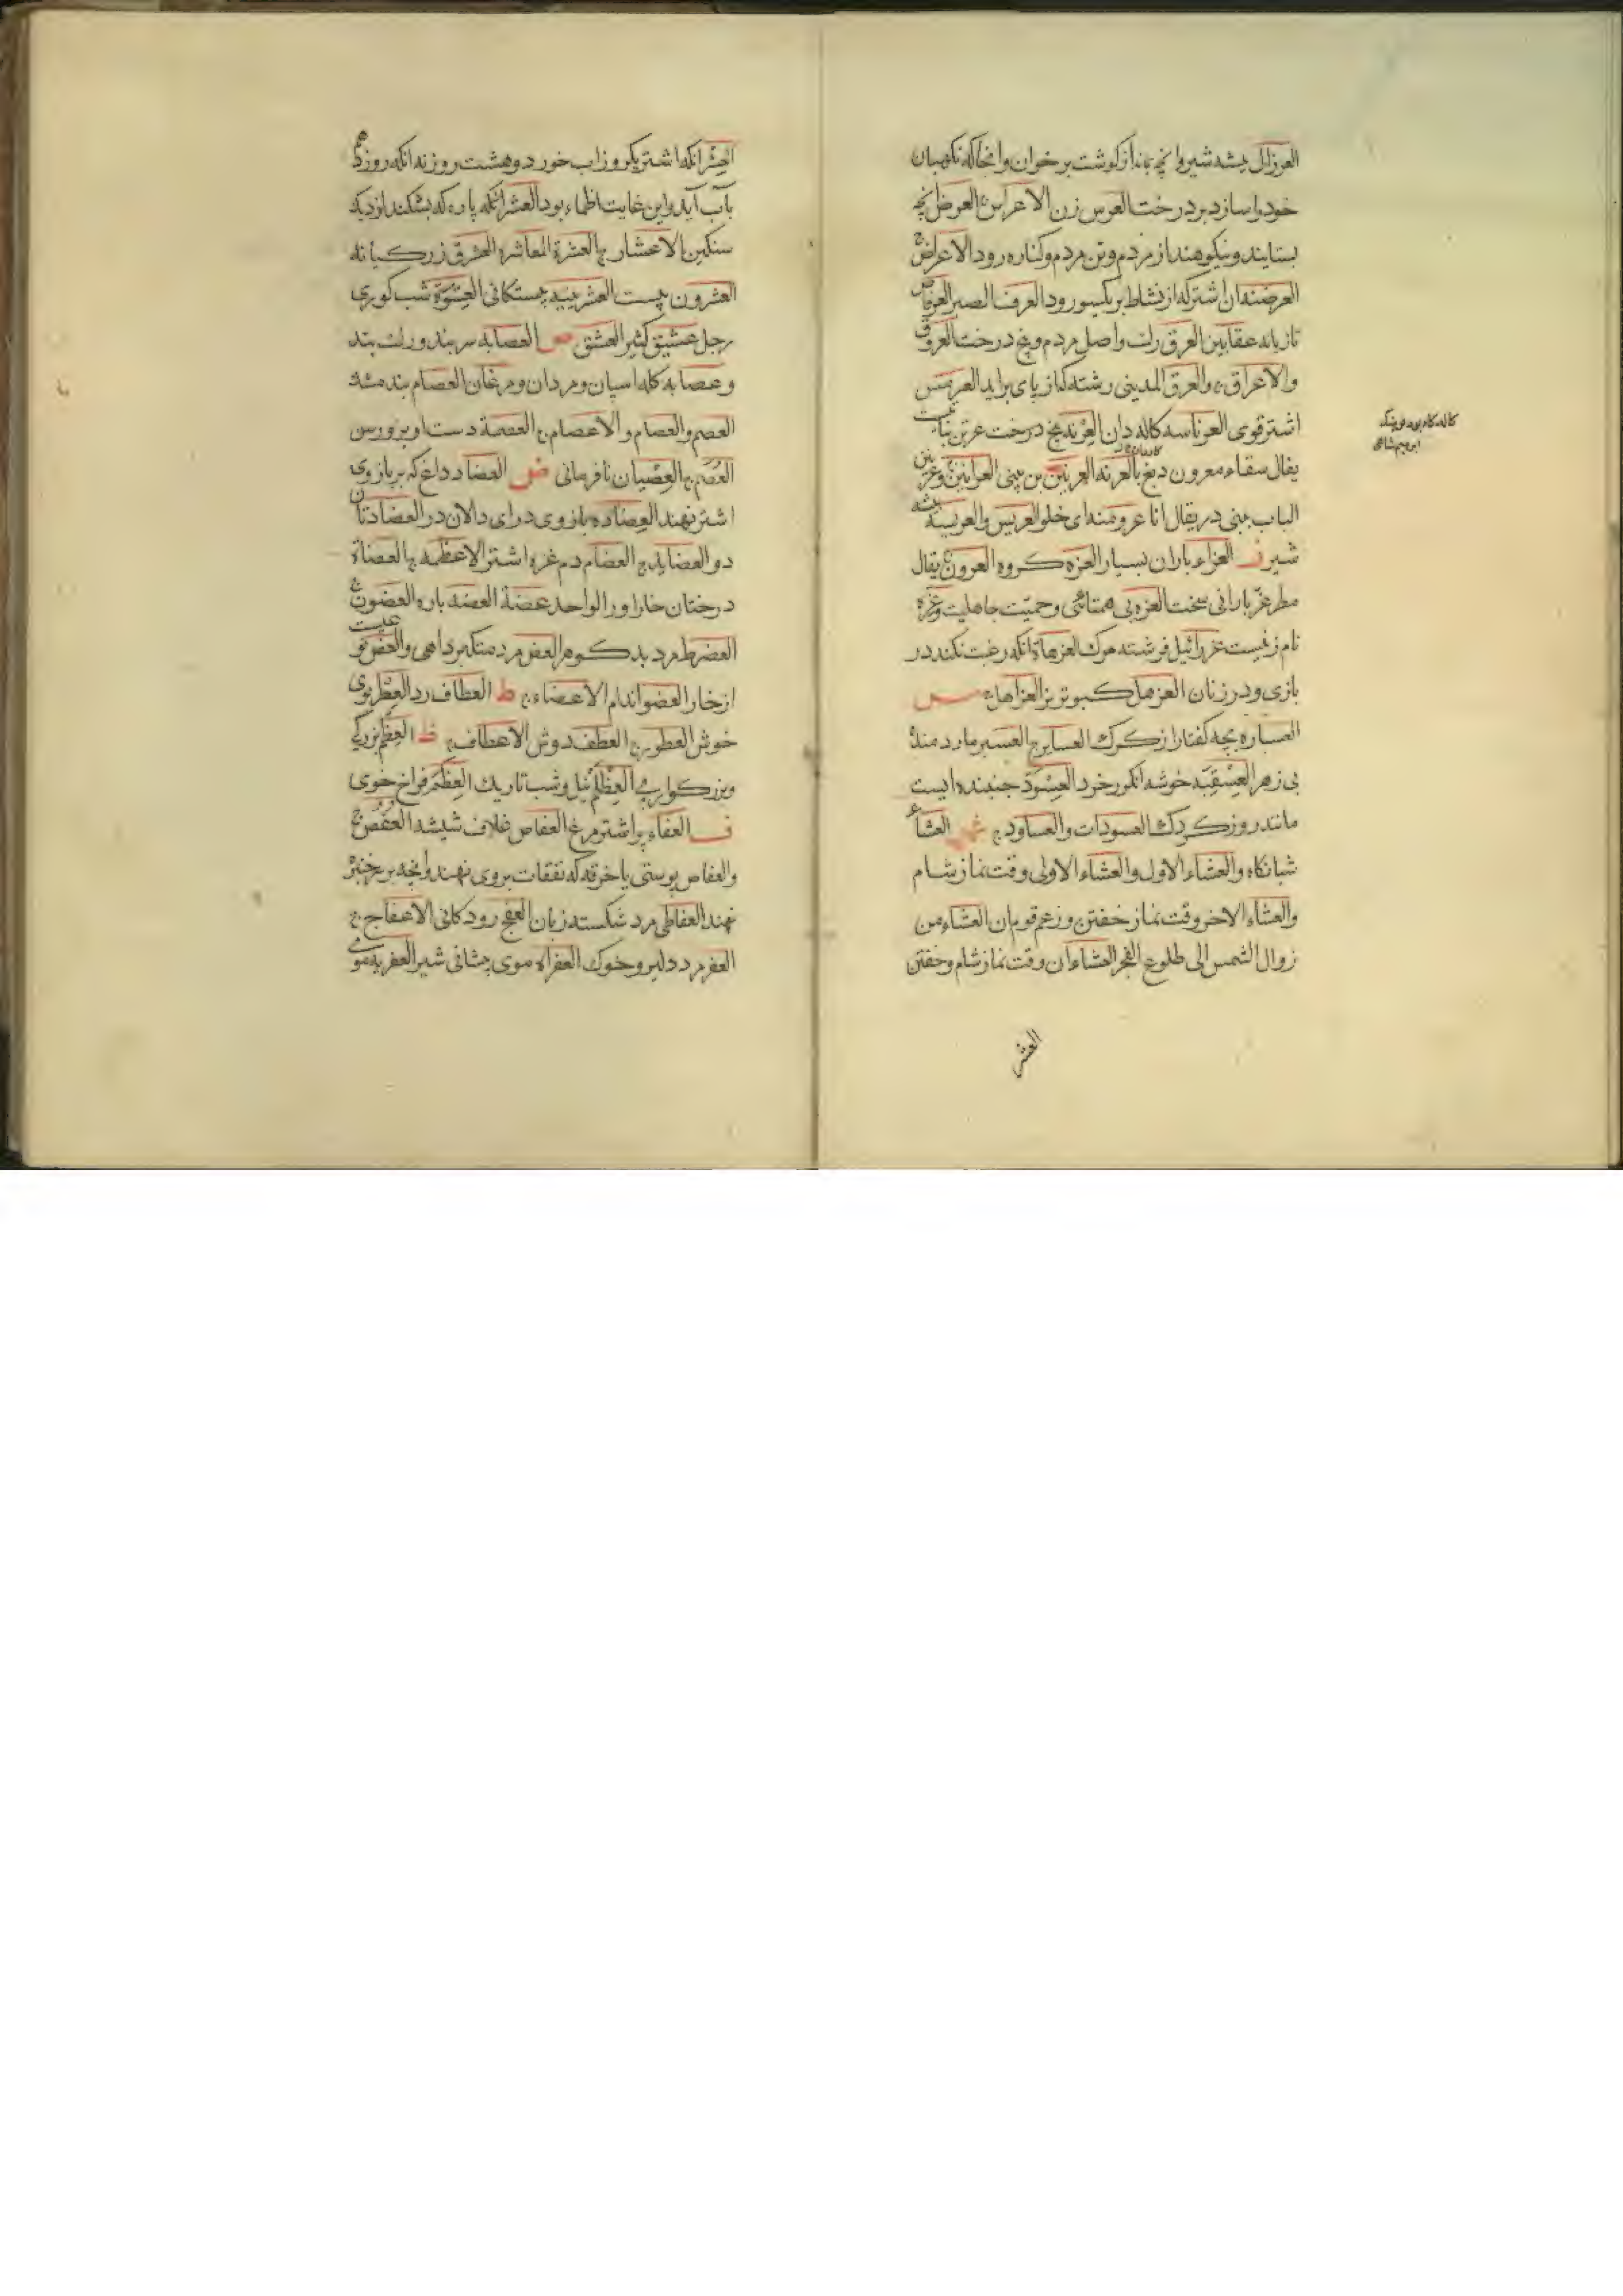 العرزال بیشه شیر وانچه بماند از کوشت بر خوان وانجا که نکهبان
خود را سازد بر درخت العرس زن الاعراس ج العرض انچه
بستایند و نیکوهند از مردم وتن مردم وکناره رود الاعراض ج
العرضنه ان اشتر که از نشاط بر یکسو رود العرف الصبر العرفاص
تازیانه عقابین العرق رك واصل مردم وبیخ درخت العروق
والاعراق ج والعرق المدینی رشته که از پای براید العرمس
اشتر قوی العرناسه کاله دان العرنه بیخ درخت عرتن نباتیست
یقال سقاء معرون دبغ بالعرنه العرنین بن بینی العرانین ج وعرنین
الباب بینی در یقال انا عرو منه ای خلو العریس والعریسة بیشه
شیر ز العزاء باران بسیار العزه کروه العزون ج یقال
مطر عز بارانی سخت العزه بی همتائی وحمیّت جاهلیت وعزه
نام زنیست عزرائیل فرشته مرك العزهاة انکه رغبت نکند در
بازی ودر زنان العزهل کبوتر نر العزاهل ج س
العساره بچه کفتار از کرك العسابر ج العسبر مار دمنده
بی زهر العسقبه خوشه انکور خرد العسودّ جنبنده ایست
مانند روز کردك العسودات والعساود ج ش العشاء
شبانکاه والعشاء الاول والعشاء الاولی وقت نماز شام
والعشاء الاخر وقت نماز خفتن وزعم قوم ان العشاء من
زوال الشمس الی طلوع الفجر العشاءان وقت نماز شام وخفتن
العشر
العشر انکه اشتر یکروز اب خورد وهشت روز نه انکه روز دهم
بآب آید واین غایت اظماء بود العشر انکه پاره که بشکند از دیك
سنکین الاعشار ج العشرة المعاشره العشرق زرکیانه
العشرون بیست العشرینیه بیستکانی العشوة شب کوری
رجل عشیق کثیر العشق ص العصابه سربند ورك بند
وعصابه کله اسپان ومردان ومرغان العصام بند مشك
العصم والعصام والاعصام ج العصمة دست اوبرورس
العصم ج العصیان نافرمانی ض العضاد داغ که بر بازوی
اشتر نهند العضاده بازوی در ای دالان در العضادتان
دو العضاید ج العضام دم غزه اشتر الاعضمه ج العضاة
درختان خاراور الواحد عضة العضه پاره العضون ج
العضرط مرد بدکوهر العض مرد متکبر داهی والعض نوعیست
از خار العضو اندام الاعضاء ج ط العطاف رد العطر بوی
خوش العطور ج العطف دوش الاعطاف ج ظ العظم بزرکی
وبزرکواری العظلم نیل وشب تاریك العظم فراخ خوی
ف العفاء پر اشتر مرغ العفاص غلاف شیشه العفص ج
والعفاص پوستی یا خرقه که نفقات بروی نهند وانچه بر خنبر
نهند العفاطی مرد شکسته زبان العفج رودکانی الاعفاج ج
العفر مرد دلیر وخوك العفراه موی پیشانی شیر العفریة موی